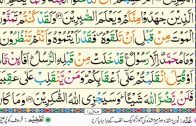 الَّذِينَ جٰهَدُوْا مِنْكُمْ وَيَعْلَمَ الصّٰبِرِيْنَ وَلَقَدْ كُنْتُمْ تَمَنَّوْنَ
الْمَوْتَ مِنْ قَبْلِ اَنْ تَلْقَوْهُ فَقَدْ رَاَيْتُمُوْهُ وَاَنْتُمْ تَنْظُرُوْنَ
وَمَا مُحَمَّدٌ اِلَّا رَسُوْلٌ قَدْ خَلَتْ مِنْ قَبْلِهِ الرُّسُلُ اَفَا۟ئِنْ
مَّاتَ اَوْ قُتِلَ انْقَلَبْتُمْ عَلٰٓى اَعْقَابِكُمْ وَمَنْ يَّنْقَلِبْ عَلٰى عَقِبَيْهِ
فَلَنْ يَّضُرَّ اللّٰهَ شَيْـًٔا وَسَيَجْزِى اللّٰهُ الشّٰكِرِيْنَ وَمَا كَانَ